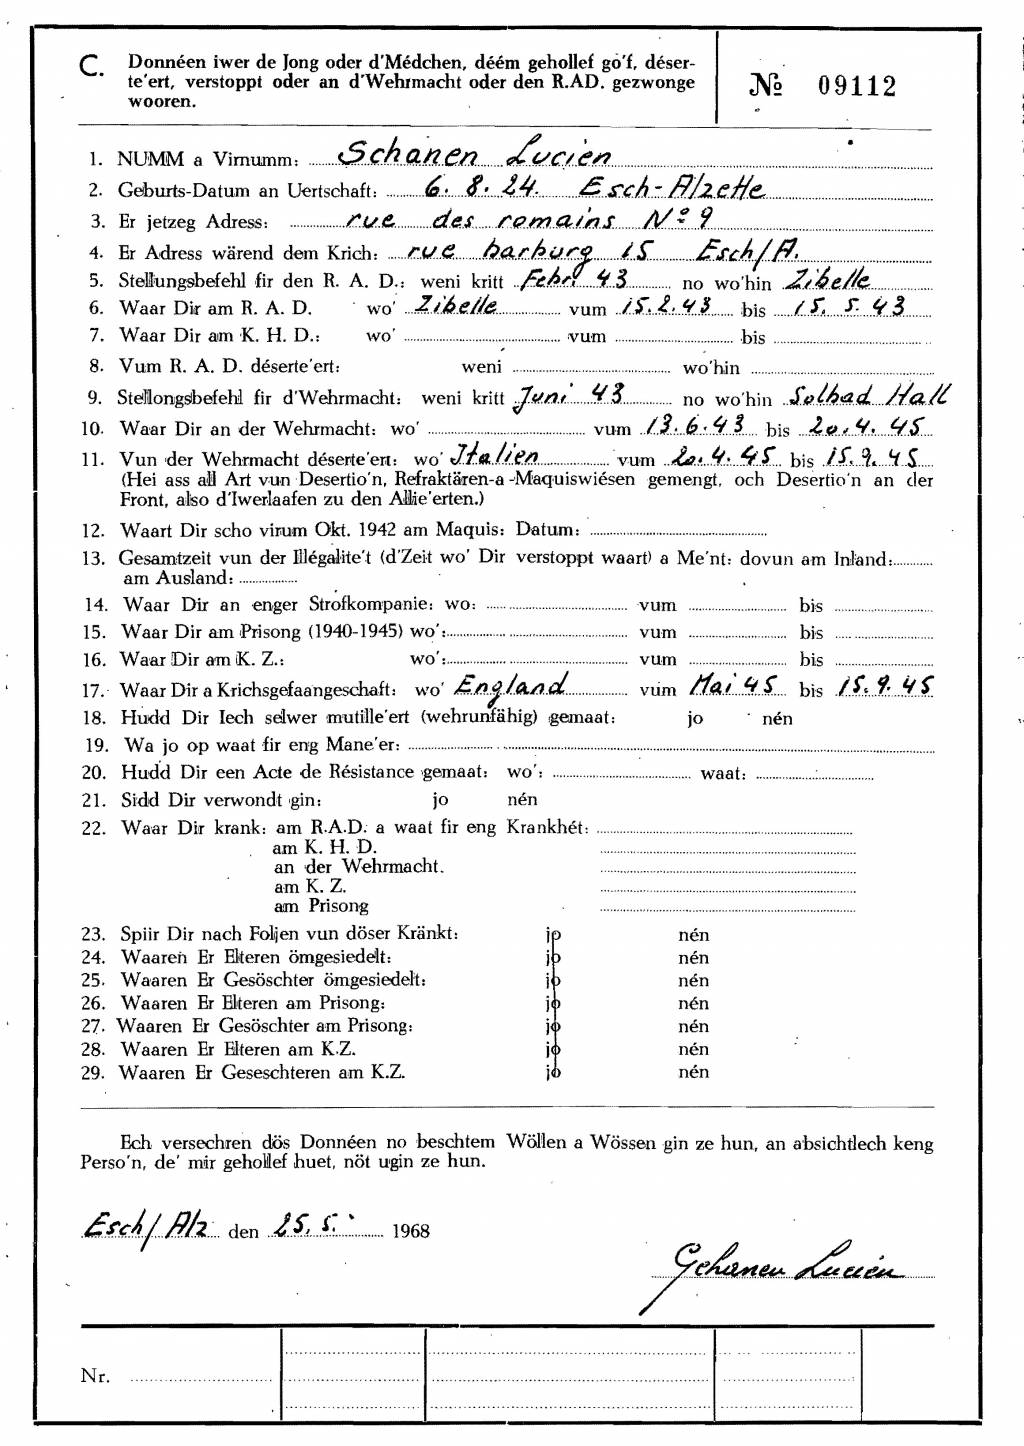 C. Donnéen iwer de Jong oder d'Médchen, déém gehollef gó'f, déser-
te'ert, verstoppt oder an d'Wehrmacht oder den R.AD. gezwonge
wooren.
№ 09112
1. NUMM a Virnumm: Schanen Lucien
2. Geburts-Datum an Uertschaft: 6. 8. 24. Esch-Alzette
3. Er jetzeg Adress: rue des romains Nº 9
4. Er Adress wärend dem Krich: rue harburg 15 Esch/A.
5. Stellungsbefehl fir den R. A. D.: weni kritt Febr. 43 no wo'hin Zibelle
6. Waar Dir am R. A. D. wo' Zibelle vum 15.2.43 bis 15. 5. 43
7. Waar Dir am K. H. D.: wo' vum bis
8. Vum R. A. D. déserte'ert: weni wo'hin
9. Stellongsbefehl fir d'Wehrmacht: weni kritt Juni 43 no wo'hin Solbad Hall
10. Waar Dir an der Wehrmacht: wo' vum 13.6.43 bis 20.4.45
11. Vun der Wehrmacht déserte'ert: wo' Italien vum 20.4.45 bis 15.9.45
(Hei ass all Art vun Desertio'n, Refraktären-a-Maquiswiésen gemengt, och Desertio'n an der
Front, also d'Iwerlaafen zu den Allie'erten.)
12. Waart Dir scho virum Okt. 1942 am Maquis: Datum:
13. Gesamtzeit vun der Illégalite't (d'Zeit wo' Dir verstoppt waart) a Me'nt: dovun am Inland:
am Ausland:
14. Waar Dir an enger Strofkompanie: wo: vum bis
15. Waar Dir am Prisong (1940-1945) wo': vum bis
16. Waar Dir am K. Z.: wo': vum bis
17. Waar Dir a Krichsgefaangeschaft: wo' England vum Mai 45 bis 15.9.45
18. Hudd Dir Iech selwer mutille'ert (wehrunfähig) gemaat: jo nén
19. Wa jo op waat fir eng Mane'er:
20. Hudd Dir een Acte de Résistance gemaat: wo': waat:
21. Sidd Dir verwondt gin: jo nén
22. Waar Dir krank: am R.A.D. a waat fir eng Krankhét:
am K. H. D.
an der Wehrmacht.
am K. Z.
am Prisong
23. Spiir Dir nach Foljen vun döser Kränkt: jo nén
24. Waaren Er Elteren ömgesiedelt: jo nén
25. Waaren Er Gesöschter ömgesiedelt: jo nén
26. Waaren Er Elteren am Prisong: jo nén
27. Waaren Er Gesöschter am Prisong: jo nén
28. Waaren Er Elteren am K.Z. jo nén
29. Waaren Er Geseschteren am K.Z. jo nén
Ech versechren dös Donnéen no beschtem Wöllen a Wössen gin ze hun, an absichtlech keng
Perso'n, de' mir gehollef huet, nöt ugin ze hun.
Esch/Alz den 25. 5. 1968
Schanen Lucien
Nr.